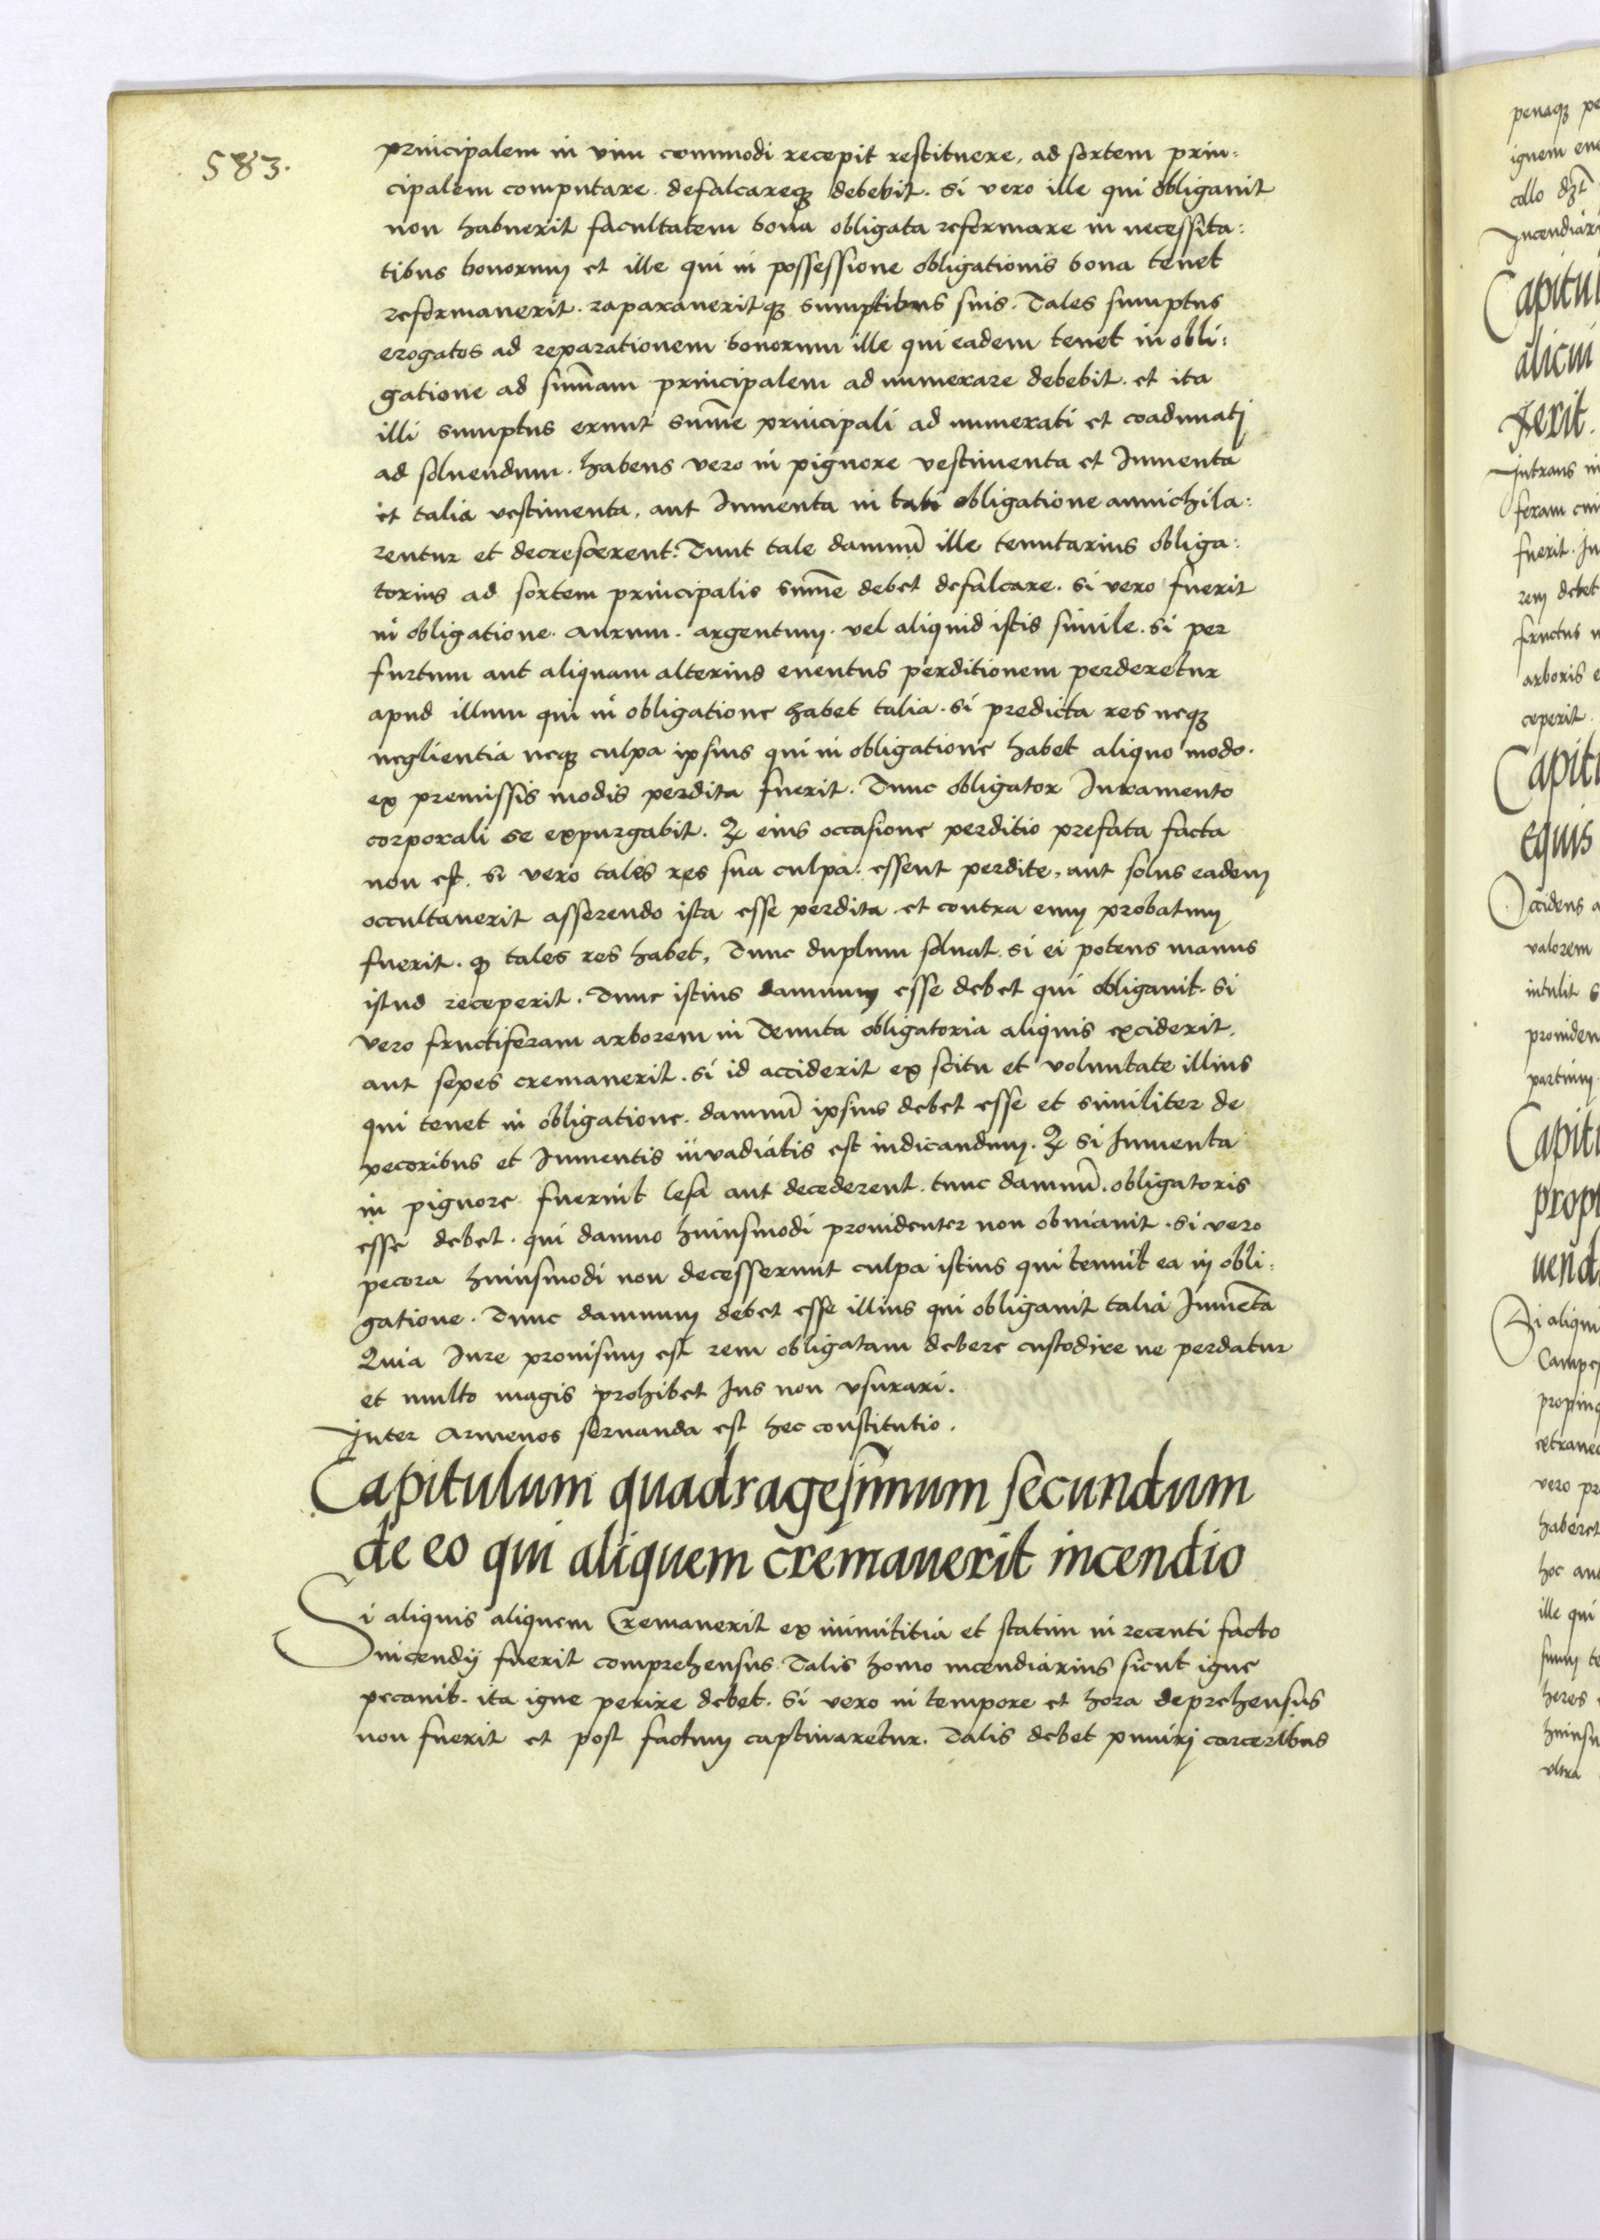 583.
principalem in vim commodi recepit restituere, ad sortem prin:
cipalem computare. defalcareqꝫ debebit. si vero ille qui obligauit
non habuerit facultatem bona obligata reformare in necessita:
tibus bonorum et ille qui in possessione obligationis bona tenet
reformauerit. raparaueritqꝫ sumptibus suis. Tales sumptus
erogatos ad reparationem bonorum ille qui eadem tenet in obli:
gatione ad sum̄am principalem ad numerare debebit. et ita
illi sumptus erunt sum̄e principali ad numerati et coadunatj
ad soluendum. habens vero in pignore vestimenta et Iumenta
et talia vestimenta, aut Iumenta in tali obligatione annichila:
rentur et decrescerent: Tunc tale damnū ille tenutarius obliga:
torius ad sortem principalis sum̄e debet defalcare. si vero fuerit
in obligatione. aurum. argentum. vel aliquid istis simile. si per
furtum aut aliquam alterius euentus perditionem perderetur
apud illum qui in obligatione habet talia. si predicta res neqꝫ
neglientia neqꝫ culpa ipsius qui in obligatione habet aliquo modo.
ex premissis modis perdita fuerit. Tunc obligator Iuramento
corporali se expurgabit. Qꝫ eius occasione perditio prefata facta
non est. si vero tales res sua culpa: essent perdite, aut solus eadem
occultauerit asserendo ista esse perdita. et contra eum probatum
fuerit. qꝫ tales res habet, Tunc duplum soluat. si ei potens manus
istud receperit. Tunc istius damnum esse debet qui obligauit. si
vero fructiferam arborem in Tenuta obligatoria aliquis exciderit.
aut sepes cremauerit. si id acciderit ex scitu et voluntate illius
qui tenet in obligatione. damnū ipsius debet esse et similiter de
pecoribus et Iumentis inuadiatis est iudicandum. Qꝫ si Iumenta
in pignore fuerint lesa aut decederent. tunc damnū. obligatoris
esse debet. qui damno huiusmodi prouidenter non obuiauit. si vero
pecora huiusmodi non decesserunt culpa istius qui tenuit ea in obli:
gatione. Tunc damnum debet esse illius qui obligauit talia Iumēta
Quia Iure prouisum est rem obligatam debere custodire ne perdatur
et multo magis prohibet Ius non vsurari.
Inter Armenos seruanda est hec constitutio.
Capitulum quadragesim̄um secundum
de eo qui aliquem cremauerit incendio
Si aliquis aliquem Cremauerit ex inimititia et statim in recenti facto
incendij fuerit comprehensus Talis homo incendiarius sicut igne
pecauit. ita igne perire debet. si vero in tempore et hora deprehensus
non fuerit et post factum captiuaretur. Talis debet punirj carceribus
penaqꝫ
ignem
collo
Incendiari
Capitul
alicui
Intrans in
feram
fuerit. In
rem debet
fructus
arboris
ceperit.
Capitu
equis
Occidens
valorem
intulit
prouiden
partium
Capitu
prop
uend
Si aliqui
Campe
propinq
extraneo
vero
haberet
hoc
ille qui
heres
huiusm
vltra